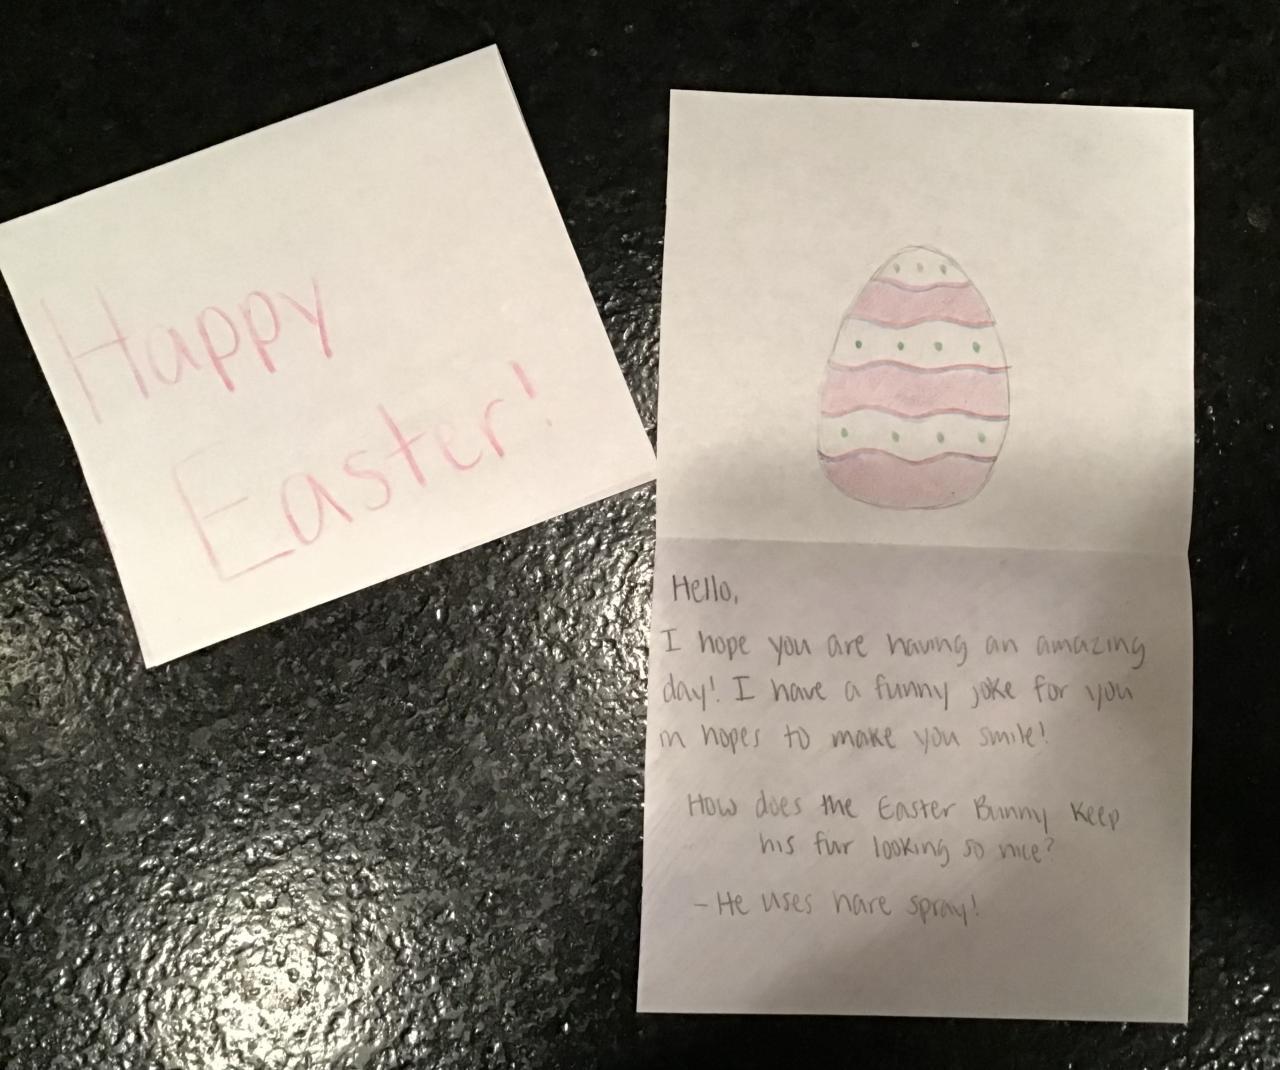 Happy
Easter!
Hello,
I hope you are having an amazing
day! I have a funny joke for you
in hopes to make you smile!
How does the Easter Bunny keep
his fur looking so nice?
- He uses hare spray!